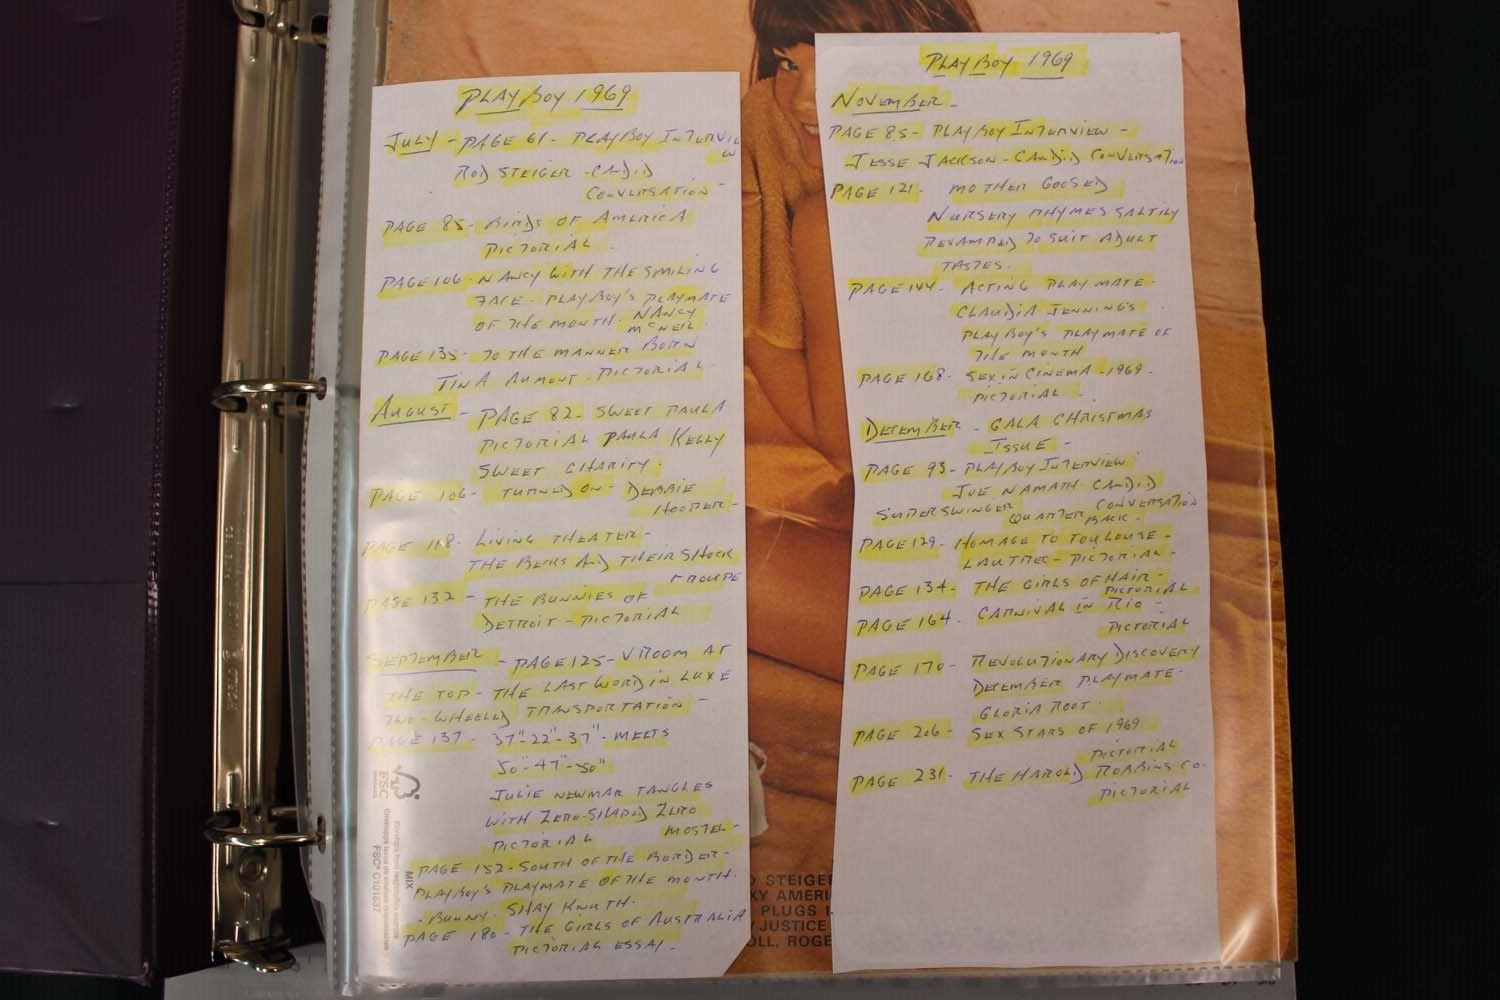 PLAYBOY 1969
JULY - PAGE 61 - PLAYBOY INTERVIEW
ROD STEIGER - CANDID
CONVERSATION -
PAGE 85 - BIRDS OF AMERICA
PICTORIAL -
PAGE 106 - NANCY WITH THE SMILING
FACE - PLAYBOY'S PLAYMATE
OF THE MONTH. NANCY
MCNEIL.
PAGE 135 - TO THE MANNER BORN
TINA AUMONT - PICTORIAL -
AUGUST - PAGE 82 - SWEET PAULA
PICTORIAL PAULA KELLY
SWEET CHARITY.
PAGE 106 - TURNED ON - DEBBIE
HOOPER -
PAGE 118 - LIVING THEATER -
THE BECKS AND THEIR SHOCK
TROUPE
PAGE 132 - THE BUNNIES OF
DETROIT - PICTORIAL
SEPTEMBER - PAGE 125 - VROOM AT
THE TOP - THE LAST WORD IN LUXE
TWO-WHEELED TRANSPORTATION -
PAGE 137 - 37"-22"-37" - MEETS
50"-47"-50"
JULIE NEWMAR TANGLES
WITH ZERO-SHAPED ZERO
PICTORIAL MOSTEL -
PAGE 152 - SOUTH OF THE BORDER -
PLAYBOY'S PLAYMATE OF THE MONTH.
- BUNNY. SHAY KNUTH.
PAGE 180 - THE GIRLS OF AUSTRALIA
PICTORIAL ESSAY -
FSC
MIX
FSC® C101537
PLAYBOY 1969
NOVEMBER -
PAGE 85 - PLAYBOY INTERVIEW -
JESSE JACKSON - CANDID CONVERSATION
PAGE 121 - MOTHER GOOSED
NURSERY RHYMES SALTILY
REVAMPED TO SUIT ADULT
TASTES.
PAGE 144 - ACTING PLAYMATE -
CLAUDIA JENNINGS .
PLAYBOY'S PLAYMATE OF
THE MONTH
PAGE 168 - SEX IN CINEMA - 1969 -
PICTORIAL - .
DECEMBER - GALA CHRISTMAS
ISSUE -
PAGE 93 - PLAYBOY INTERVIEW
JOE NAMATH - CANDID
SUPERSWINGER CONVERSATION
QUARTER BACK -
PAGE 129 - HOMAGE TO TOULOUSE -
LAUTREC - PICTORIAL -
PAGE 134 - THE GIRLS OF HAIR -
PICTORIAL
PAGE 164 - CARNIVAL IN RIO -
PICTORIAL
PAGE 170 - REVOLUTIONARY DISCOVERY
DECEMBER PLAYMATE -
GLORIA ROOT .
PAGE 206 - SEX STARS OF 1969
PICTORIAL
PAGE 231 - THE HAROLD ROBBINS CO -
PICTORIAL
STEIGE
XY AMERI
PLUGS
JUSTICE
OLL, ROGE